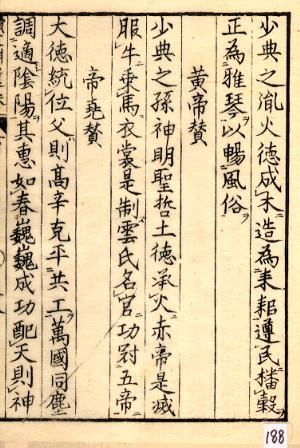 少典之胤火徳成木造為耒耜遵民播穀
正為雅琴以暢風俗
黄帝賛
少典之孫神明聖哲土徳承火赤帝是滅
服牛乗馬衣裳是制雲氏名官功冠五帝
帝堯賛
大徳統位父則髙辛克平共工萬國同塵
調適陰陽其惠如春巍巍成功配天則神
188